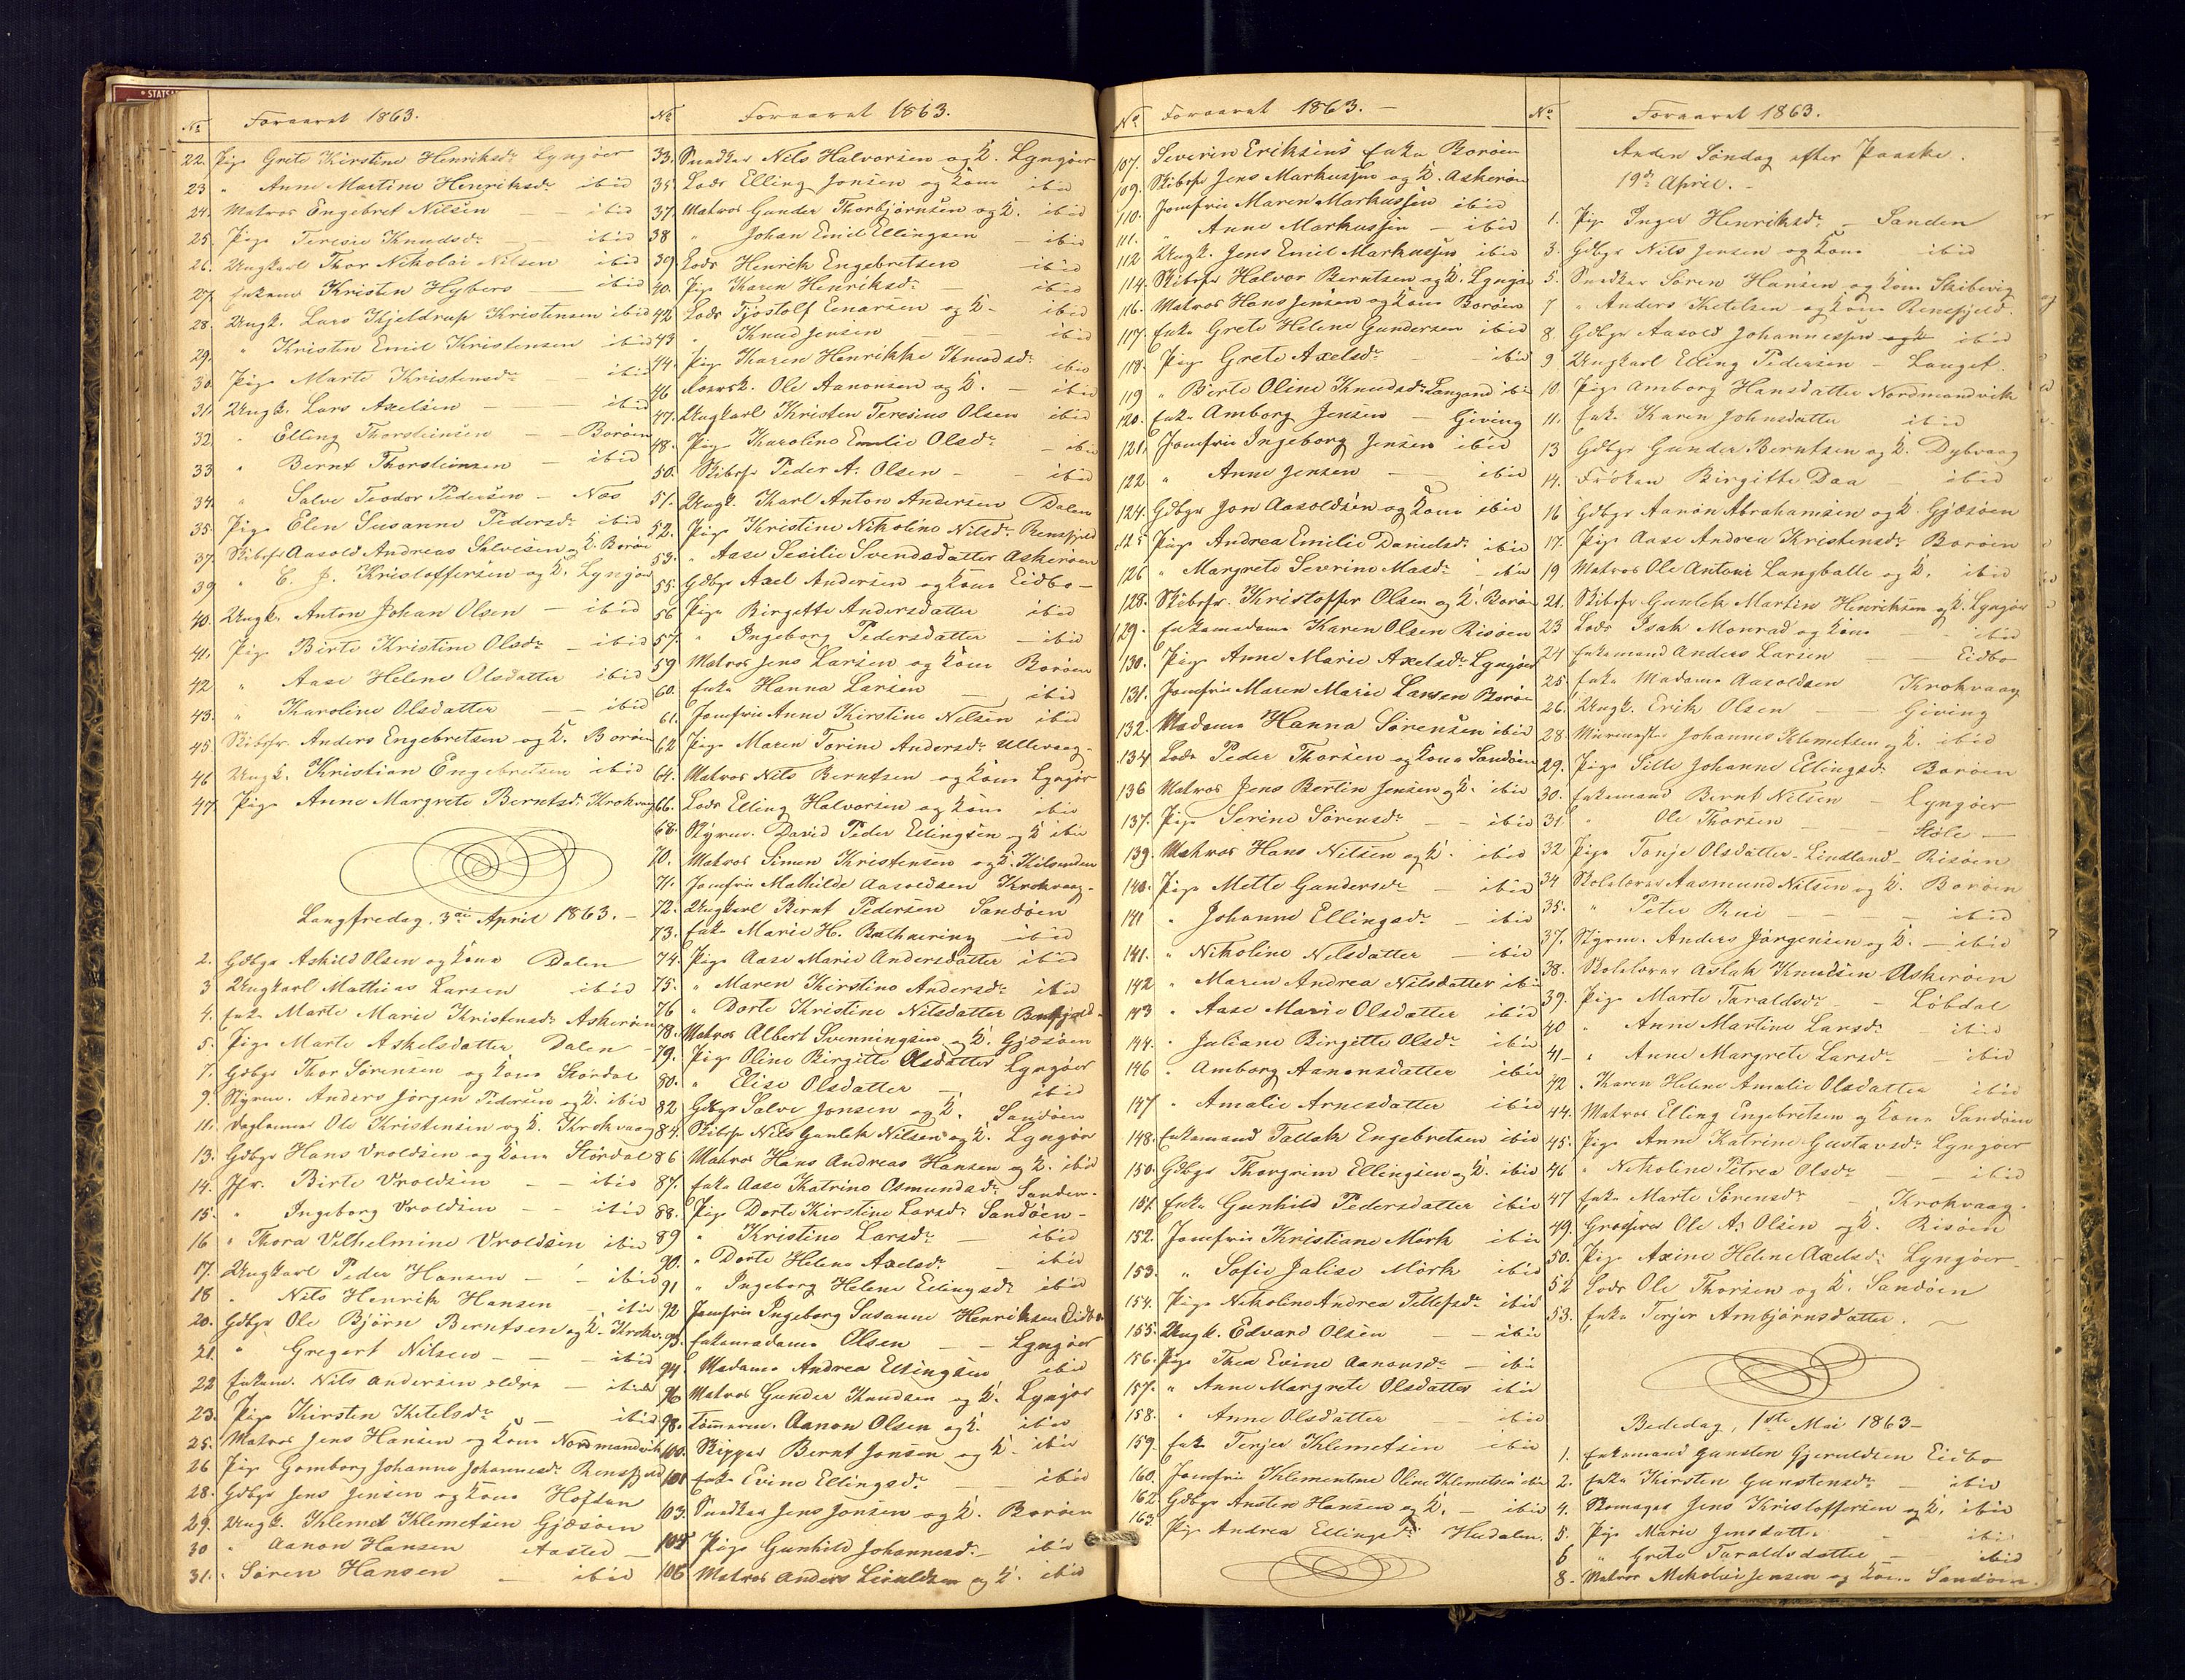 * STATSA
No Foraaret 1863.
22. Pige Grete Kirstine Henriksdr Lyngöer
23 " Anne Martine Henriksdr ibid
24. Matros Engebret Nilsen — ibid
25. Pige Teresie Knudsdr — ibid
26. Ungkarl Thor Nikolai Nilsen ibid
27. Enkem Kristen Hybers — ibid
28. Ungk. Lars Kjeldrup Kristensen ibid
29. " Kristen Emil Kristensen ibid
30. Pige Marte Kristensdr — ibid
31. Ungk. Lars Axelsen — ibid
32. " Elling Thorsteinsen — Boröen
33 " Bernt Thorsteinsen — ibid
34. " Salve Teodor Pedersen — Næs
35. Pige Elen Susanne Pedersdr ibid
37. Skibsfr Aasold Andreas Salvesen og K. Boröen
39 " C. J. Kristoffersen og K. Lyngöer
40. Ungk. Anton Johan Olsen — ibid
41. Pige Birte Kristine Olsdr — ibid
42 " Aase Helene Olsdatter ibid
43. " Karoline Olsdatter — ibid
45 Skibsfr. Anders Engebretsen og K. Boröen
46 Ungk. Kristian Engebretsen ibid
47. Pige Anne Margrete Berntsdr Krokvaag
Langfredag, 3die April 1863. —
2. Gdbgr Askild Olsen og Kone Dalen
3 Ungkarl Mathias Larsen ibid
4. Enke Marte Marie Kristensdr Askeröen
5. Pige Marte Askelsdatter Dalen —
7. Gdbgr Thor Sörensen og Kone Stordal
9. Styrm. Anders Jörgen Pedersen og K. ibid
11. Daglönner Ole Kristensen og K. Krokvaag
13. Gdbgr Hans Vroldsen og Kone Stördal
14. Jfr. Birte Vroldsen — — ibid
15. " Ingeborg Vroldsen — — ibid
16 " Thora Vilhelmine Vroldsen ibid
17. Ungkarl Peder Hansen — — ibid
18 " Nils Henrik Hansen — ibid
20. Gdbgr Ole Björn Berntsen og K. Krokv.
21. " Gregert Nilsen — — — ibid
22 Enkem. Nils Andersen eldre — ibid
23. Pige Kirsten Ketelsdr — ibid
25. Matros Jens Hansen og Kone Nordmandvik
26 Pige Gomborg Johanne Johannesdr Rensfjeld
28. Gdbgr Jens Jensen og Kone Höftan
29. Ungk. Klemet Klemetsen Gjæsöen
30 " Aanon Hansen Aasted —
31. " Sören Hansen — ibid
No Foraaret 1863.
33. Snedker Nils Halvorsen og K. Lyngöer
35. Lods Elling Jonsen og Kone ibid
37. Matros Gunder Thorbjörnsen og K. ibid
38 " Johan Emil Ellingsen — ibid
39. Lods Henrik Engebretsen ibid
40. Pige Karen Henriksdr — ibid
42 Lods Tjostolf Einarsen og K — ibid
43 " Knud Jensen — ibid
44. Pige Karen Henrikke Knudsdr ibid
46 Ole Aanonsen og K. — ibid
47. Ungkarl Kristen Teresius Olsen ibid
48. Pige Karoline Emilie Olsdr — ibid
50. Skibsfr Peder A. Olsen — — ibid
51. Ungk. Karl Anton Andersen Dalen
52. Pige Kristine Nikoline Nilsdr Rensfjeld
53. " Aase Sesilie Svendsdatter Askeröen
55. Gdbgr Axel Andersen og Kone Eidbo —
56 Pige Birgette Andersdatter ibid
57. " Ingeborg Pedersdatter — ibid
59 Matros Jens Larsen og Kone Boröen
60. Enke Hanna Larsen — ibid
61. Jomfru Anne Kirstine Nilsen ibid
62 Pige Maren Torine Andersdr Ulevaag —
64. Matros Nils Berntsen og Kone Lyngör
66. Lods Elling Halvorsen og Kone ibid
68. Styrm. David Peder Ellingsen og K ibid
70. Matros Simen Kristensen og K. Kilsenden
71. Jomfru Mathilde Aasoldsen Krokvaag —
72. Ungkarl Bernt Pedersen Sandöen
73. Enke Marie H. Bathnering ibid
74. Pige Aase Marie Andersdatter ibid
75. " Maren Kirstine Andersdr ibid
76 " Dorte Kristine Nilsdatter Rensfjeld
78. Matros Albert Svenningsen og K. Gjæsöen
79. Pige Oline Birgitte Olsdatter Lyngöer
80. " Elise Olsdatter — ibid
82 Gdbgr Salve Jonsen og K. Sandöen
84. Skibsfr Nils Gunlek Nilsen og K. Lyngör
86 Matros Hans Andreas Hansen og K. ibid
87. Enke Aase Katrine Osmundsdr Sanden —
88. Pige Dorte Kirstine Larsdr Sandöen —
89 " Kristine Larsdr — ibid
90. " Dorte Helene Axelsdr — ibid
91 " Ingeborg Helene Ellingsdr ibid
92 Jomfru Ingeborg Susanne Henriksen Eidbo
93. Enkemadame Olsen — — Lyngöer
94 Madame Andrea Ellingsen ibid
96 Matros Gunder Knudsen og K. Lyngör
98. Tömmerm. Aanon Olsen og K. ibid
100. Skipper Bernt Jonsen og K. ibid
101 Enke Evine Ellingsdr — ibid
103. Snedker Jens Jonsen og K. Boröen
104 Pige Gunhild Johannesdr — ibid
106 Matros Anders Livaldsen og K. ibid
No Foraaret 1863. —
107. Severin Eriksens Enke Boröen
109. Skibsfr Jens Markussen og K. Askeröen
110. Jomfru Maren Markussen ibid
111. " Anne Markussen — ibid
112 Ungk. Jens Emil Markussen ibid
114. Skibsfr Halvor Berntsen og K. Lyngör
116. Matros Hans Jensen og Kone Boröen
117. Enke Grete Helene Gundersen ibid
118. Pige Grete Axelsdr — — ibid
119 " Birte Oline Knudsdr Langand ibid
120. Enke Amborg Jensen — Giving
121. Jomfru Ingeborg Jensen ibid
122 " Anne Jensen — ibid
124. Gdbgr Jon Aasoldsen og Kone ibid
125 Pige Andrea Emilie Danielsdr ibid
126 " Margrete Severine Masdr — ibid
128. Skibsfr. Kristoffer Olsen og K. Boröen
129. Enkemadame Karen Olsen Risöen
130. Pige Anne Marie Axelsdr Lyngöer
131. Jomfru Maren Marie Larsen Boröe
132. Madame Hanna Sörensen ibid
134 Lods Peder Thorsen og Kone Sandöen
136 Matros Jens Bertin Jensen og K. ibid
137. Pige Serine Sörensdr — — ibid
139. Matros Hans Nilsen og K. ibid
140. Pige Mette Gundersdr — ibid
141 " Johanne Ellingsdr — ibid
141. " Nikoline Nilsdatter — ibid
142 " Maren Andrea Nilsdatter ibid
143 " Aase Marie Olsdatter ibid
144. " Juliane Birgitte Olsdr ibid
146 " Amborg Aanonsdatter ibid
147 " Amalie Arnesdatter ibid
148. Enkemand Tallak Engebretsen ibid
150. Gdbgr Thorgrim Ellingsen og K. ibid
151. Enke Gunhild Pedersdatter ibid
152. Jomfru Kristiane Mörk ibid
153. " Sofie Jalise Mörk ibid
154. Pige Nikoline Andrea Tellefsdr ibid
155. Ungk. Edvard Olsen — — ibid
156. Pige Thea Evine Aanonsdr — ibid
157. " Anne Margrete Olsdatter ibid
158. " Anne Olsdatter — ibid
159. Enke Terjer Klemetsen ibid
160. Jomfru Klementine Oline Klemetsen ibid
162. Gdbgr Ansten Hansen og K. — ibid
163. Pige Andrea Ellingsdr Hudalen.
No Foraaret 1863.
Anden Söndag efter Paaske.
19de April. —
1. Pige Inger Henriksdr — Sanden
3. Gdbgr Nils Jensen og Kone ibid
5. Snedker Sören Hansen og Kone Skibevig
7 " Anders Ketelsen og Kone Rensfjeld.
8. Gdbgr Aasold Johannessen og K ibid
9 Ungkarl Elling Pedersen — Lauget.
10. Pige Amborg Hansdatter Nordmandvik
11. Enke Karen Johnsdatter ibid
13 Gdbgr Gunder Berntsen og K. Dybvaag
14. Fröken Birgitte Daa — ibid
16 Gdbgr Aanon Abrahamsen og K Gjæsöen
17. Pige Aase Andrea Kristensdr Boröen
19 Matros Ole Antoni Langballe og K. ibid
21. Skibsfr Gunlek Martin Henriksen og K. Lyngör
23 Lods Isak Monrad og Kone — ibid
24 Enkemand Anders Larsen — Eidbo
25. Enke Madame Aasoldsen Krokvaag
26. Ungk. Erik Olsen — — Giving
28 Murmester Johannes Klemetsen og K. ibid
29. Pige Sille Johanne Ellingsdr Boröen
30. Enkemand Bernt Nilsen — Lyngöer
31. " Ole Thorsen — — Støle —
32 Pige Tonje Olsdatter - Lindland - Risöen
34 Skolelærer Aasmund Nilsen og K. Boröen
35. " Peter Rui — — — ibid
37. Styrm. Anders Jörgensen og K. — ibid
38. Skolelærer Aslak Knudsen Askeröen
39. Pige Marte Taraldsdr — Löbdal
40 " Anne Martine Larsdr — ibid
41 — " Anne Margrete Larsdr — ibid
42 " Karen Helene Amalie Olsdatter ibid
44. Matros Elling Engebretsen og Kone Sandöen
45. Pige Anne Katrine Gustavsdr Lyngöer
46 " Nikoline Petrea Olsdr — ibid
47 Enke Marte Sörensdr — Krokvaag.
49. Grosserer Ole A. Olsen og K. Risöen
50. Pige Axine Helene Axelsdr Lyngöer
52 Lods Ole Thorsen og K. Sandöen
53. Enke Terjer Ambjörnsdatter.
Bededag, 1ste Mai 1863 —
1. Enkemand Gunsten Gjeruldsen Eidbo
2. Enke Kirsten Gunstensdr — ibid
4. Skomager Jens Kristoffersen og K. ibid
5. Pige Marie Jensdatter — ibid
6 " Grete Taraldsdatter — ibid
8. Matros Nikolai Jensen og Kone Sandöen.